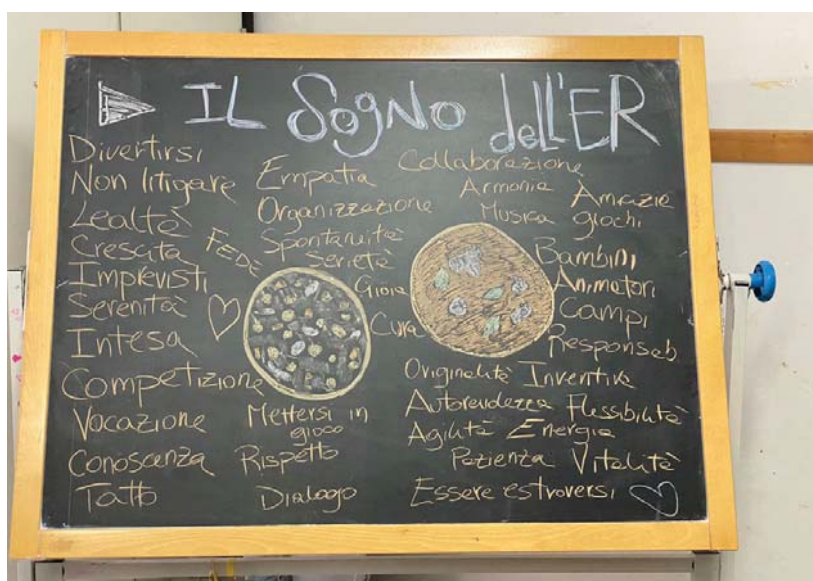 IL SogNo dell'ER
Divertirsi
Non litigare
Lealtà
Crescita
Imprevisti
Serenità
Intesa
Competizione
Vocazione
Conoscenza
Tatto
Empatia
Organizzazione
Spontaneità
Serietà
FEDE
Gioia
Cura
Mettersi in
gioco
Rispetto
Dialogo
Collaborazione
Armonia
Musica
Amicizie
giochi
Bambini
Animatori
Campi
Responsab
Originalità Inventiva
Autorevolezza Flessibilità
Agilità Energia
Pazienza Vitalità
Essere estroversi